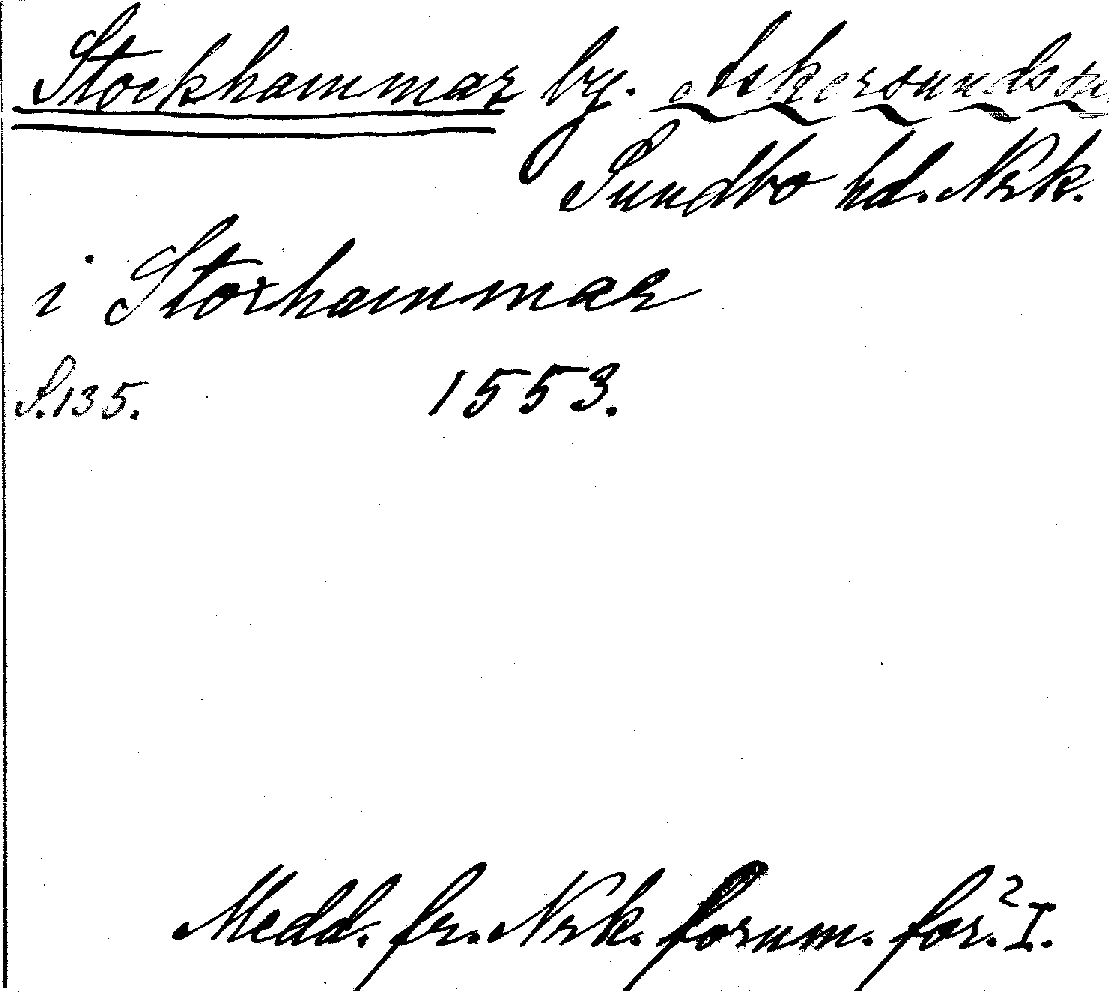 Stockhammar by. Askersunds sn.
Sundbo hd. Nrk.
i Storhammar
S. 135. 1553.
Medd. fr. Nrk. fornm. för.² I.